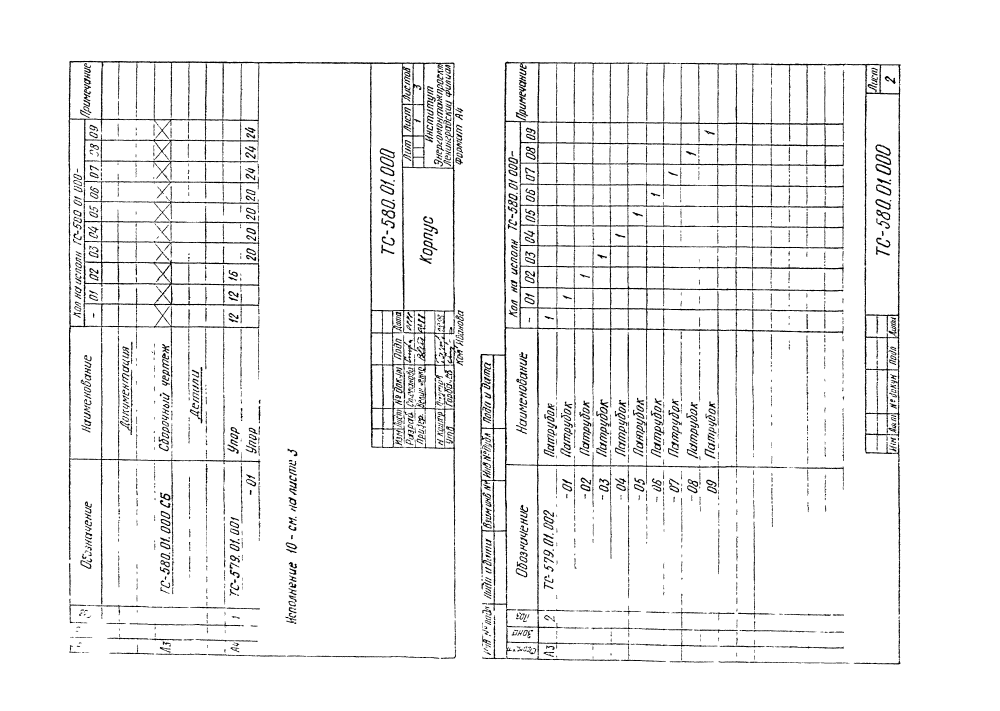 Обозначение Наименование Кол на исполн ТС-580.01.000- Примечание
- 01 02 03 04 05 06 07 08 09
Документация
А3 ТС-580.01.000 СБ Сборочный чертеж
Детали
А4 1 ТС-579.01.001 Упор 12 12 16
- 01 Упор 20 20 20 20 24 24 24
Исполнение 10 - см. на листе 3
ТС-580.01.000
Изм Лист № докум Подп Дата
Разраб
Провер
Н контр
Утв
Корпус
Лит Лист Листов
1 3
Институт
Энергомонтажпроект
Ленинградский филиал
Коп Иванова
Формат А4
Инв № подл Подп и дата Взам инв № Инв № дубл Подп и дата
Зона Поз Обозначение Наименование Кол на исполн ТС-580.01.000- Примечание
- 01 02 03 04 05 06 07 08 09
А3 2 ТС-579.01.002 Патрубок 1
- 01 Патрубок 1
- 02 Патрубок 1
- 03 Патрубок 1
- 04 Патрубок 1
- 05 Патрубок 1
- 06 Патрубок 1
- 07 Патрубок 1
- 08 Патрубок 1
09 Патрубок 1
Изм Лист № докум Подп Дата
ТС-580.01.000
Лист
2